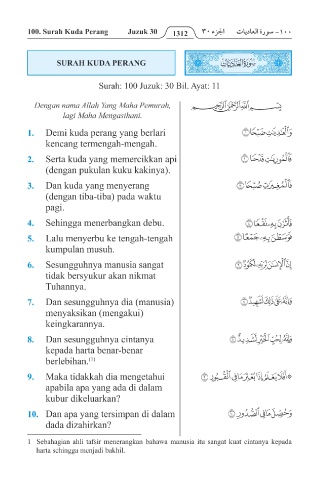 100. Surah Kuda Perang Juzuk 30 1312 الجزء ٣٠ ١٠٠ – سورة العاديات
SURAH KUDA PERANG سورة العاديات
Surah: 100 Juzuk: 30 Bil. Ayat: 11
Dengan nama Allah Yang Maha Pemurah,
lagi Maha Mengasihani.
بِسْمِ اللَّهِ الرَّحْمَٰنِ الرَّحِيمِ
1. Demi kuda perang yang berlari
kencang termengah-mengah.
وَالْعَادِيَاتِ ضَبْحًا ١
2. Serta kuda yang memercikkan api
(dengan pukulan kuku kakinya).
فَالْمُورِيَاتِ قَدْحًا ٢
3. Dan kuda yang menyerang
(dengan tiba-tiba) pada waktu
pagi.
فَالْمُغِيرَاتِ صُبْحًا ٣
4. Sehingga menerbangkan debu.
فَأَثَرْنَ بِهِ نَقْعًا ٤
5. Lalu menyerbu ke tengah-tengah
kumpulan musuh.
فَوَسَطْنَ بِهِ جَمْعًا ٥
6. Sesungguhnya manusia sangat
tidak bersyukur akan nikmat
Tuhannya.
إِنَّ الْإِنسَانَ لِرَبِّهِ لَكَنُودٌ ٦
7. Dan sesungguhnya dia (manusia)
menyaksikan (mengakui)
keingkarannya.
وَإِنَّهُ عَلَىٰ ذَٰلِكَ لَشَهِيدٌ ٧
8. Dan sesungguhnya cintanya
kepada harta benar-benar
berlebihan.(1)
وَإِنَّهُ لِحُبِّ الْخَيْرِ لَشَدِيدٌ ٨
9. Maka tidakkah dia mengetahui
apabila apa yang ada di dalam
kubur dikeluarkan?
۞ أَفَلَا يَعْلَمُ إِذَا بُعْثِرَ مَا فِي الْقُبُورِ ٩
10. Dan apa yang tersimpan di dalam
dada dizahirkan?
وَحُصِّلَ مَا فِي الصُّدُورِ ١٠
1 Sebahagian ahli tafsir menerangkan bahawa manusia itu sangat kuat cintanya kepada
harta sehingga menjadi bakhil.